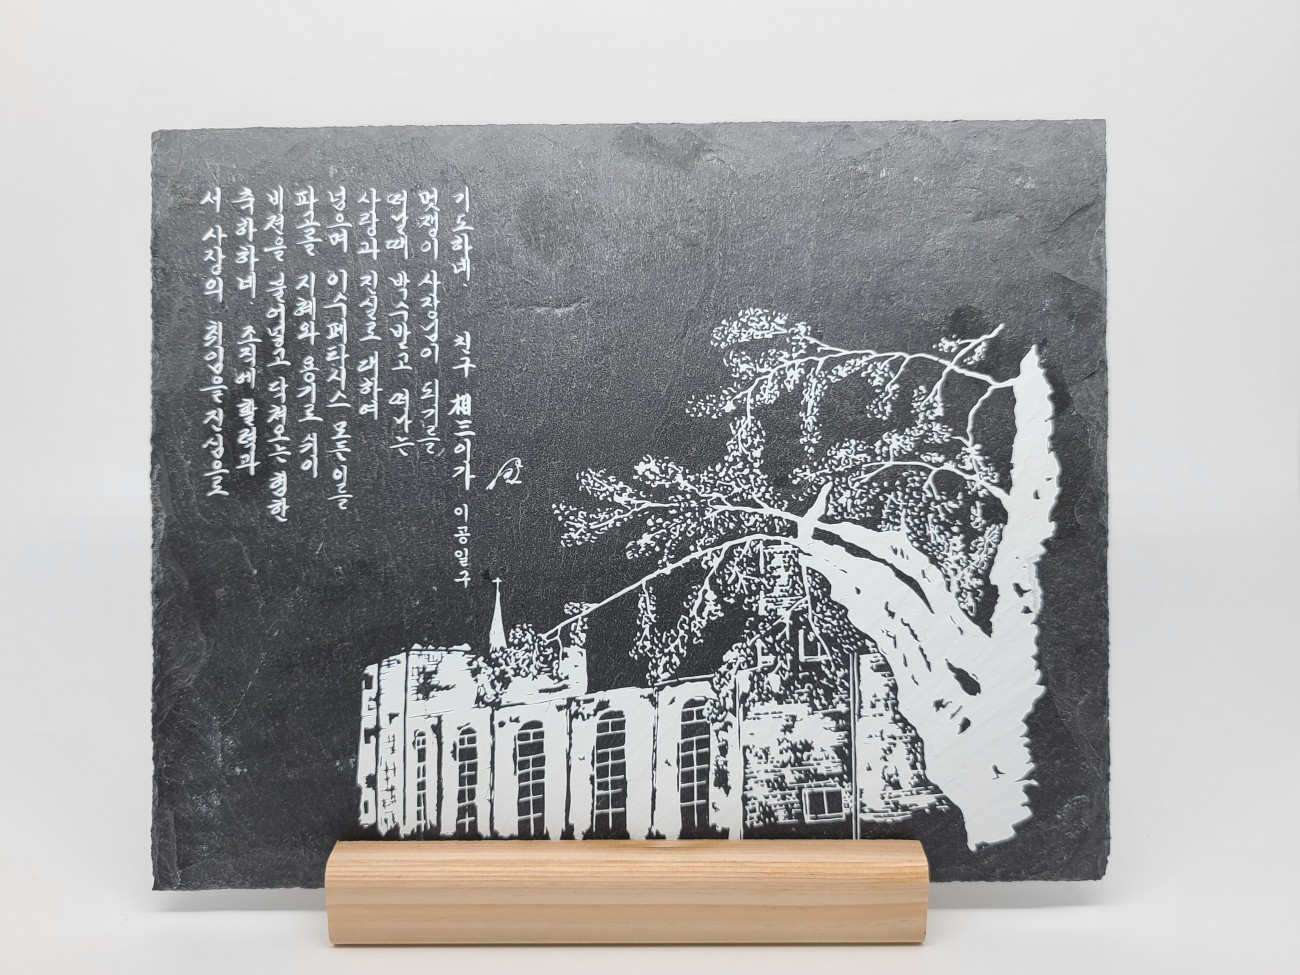 서 사장의 취임을 진심으로
축하하네. 조직에 활력과
비젼을 불어넣고 닥쳐오는 험한
파고를 지혜와 용기로 쉬이
넘으며 이수페타시스 모든이들
사랑과 진실로 대하여
떠날때 박수받고 떠나는
멋쟁이 사장님이 되기를
기도하네. 친구 相三이가 이공일구